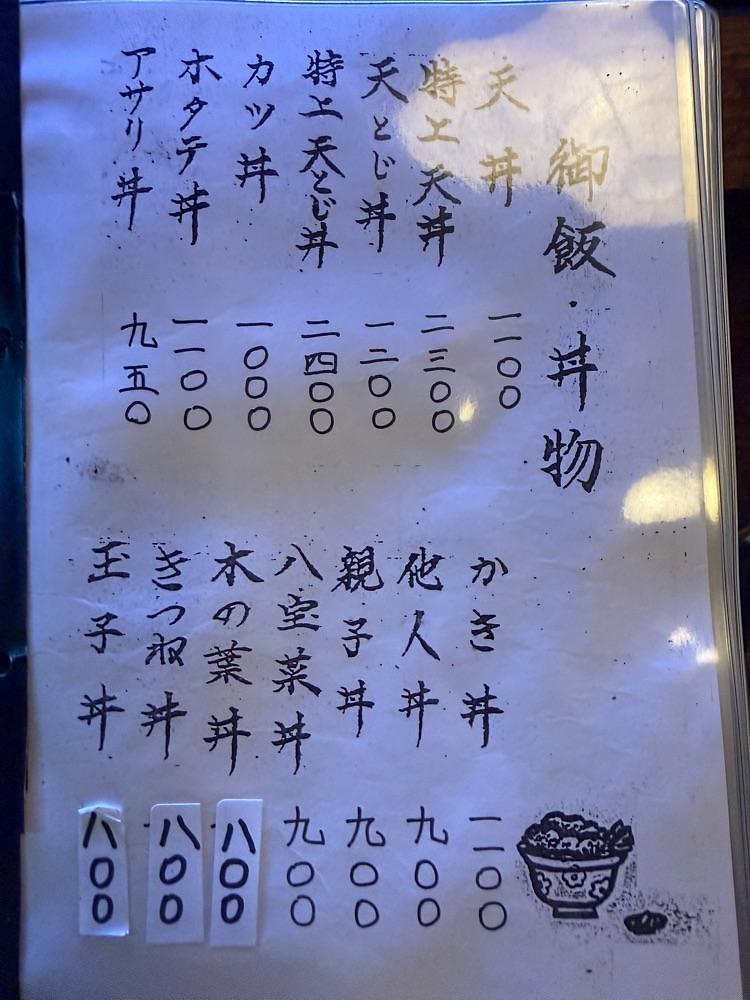 御飯・丼物
天丼 一一〇〇
特上天丼 二三〇〇
天とじ丼 一二〇〇
特上天とじ丼 二四〇〇
カツ丼 一〇〇〇
ホタテ丼 一一〇〇
アサリ丼 九五〇
かき丼 一一〇〇
他人丼 九〇〇
親子丼 九〇〇
八宝菜丼 九〇〇
木の葉丼 八〇〇
きつね丼 八〇〇
玉子丼 八〇〇